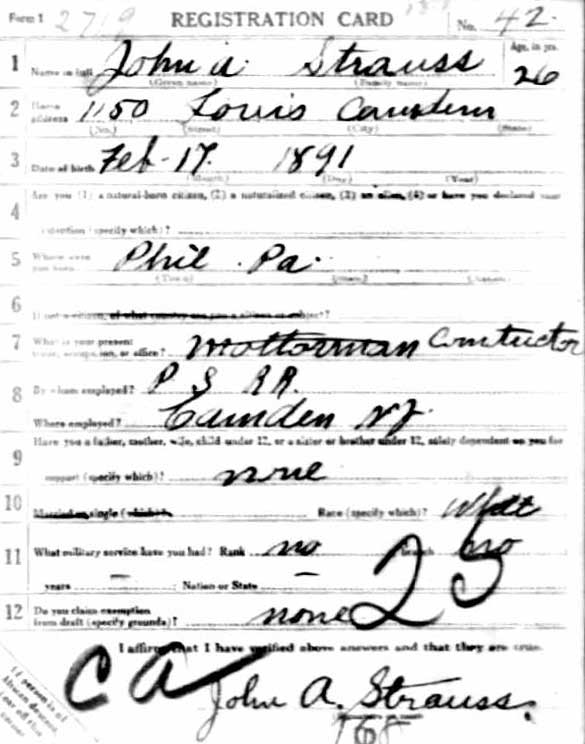 Form 1 2719 REGISTRATION CARD No. 42
1 Name in full John A. Strauss Age, in yrs. 26
(Given name) (Family name)
2 Home address 1150 Louis Camden
(No.) (Street) (City) (State)
3 Date of birth Feb - 17. 1891
(Month) (Day) (Year)
4 Are you (1) a natural-born citizen, (2) a naturalized citizen, (3) an alien, (4) or have you declared your
intention (specify which)?
5 Where were you born? Phil. Pa.
(Town) (State) (Nation)
6 If not a citizen, of what country are you a citizen or subject?
7 What is your present trade, occupation, or office? Mottorman Contructor
8 By whom employed? P S RR.
Where employed? Camden NJ.
9 Have you a father, mother, wife, child under 12, or a sister or brother under 12, solely dependent on you for
support (specify which)? none
10 Married or single (which)? Race (specify which)? White
11 What military service have you had? Rank no branch no
years — ; Nation or State —
12 Do you claim exemption from draft (specify grounds)? none 25
I affirm that I have verified above answers and that they are true.
CA John A. Strauss.
If person is of African descent, tear off this corner
168